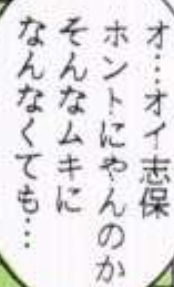 オ…オイ志保
ホントにやんのか
そんなムキに
なんなくても…